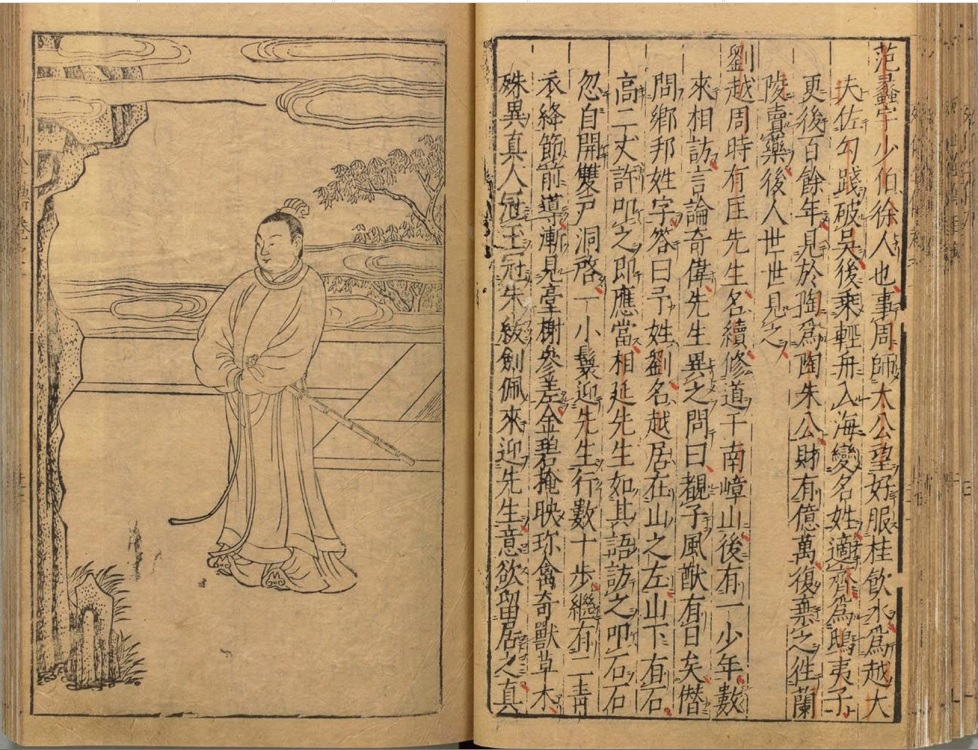 范蠡字少伯徐人也事周師太公望好服桂飲水為越大
夫佐勾踐破吳後乘輕舟入海變名姓適齊為鴟夷子
更後百餘年見於陶為陶朱公財有億萬復棄之往蘭
陵賣藥後人世世見之
劉越周時有匡先生名續修道于南嶂山後有一少年數
來相訪言論奇偉先生異之問曰覩子風猷有日矣僭
問鄉邦姓字答曰予姓劉名越居在山之左山下有石
高二丈許叩之即應當相延先生如其語訪之叩石石
忽自開雙戶洞啓一小鬟迎先生行數十步繼有二青
衣絳節前導漸見臺榭參差金碧掩映珍禽奇獸草木
殊異真人冠玉冠朱紱劍佩來迎先生意欲留居之真